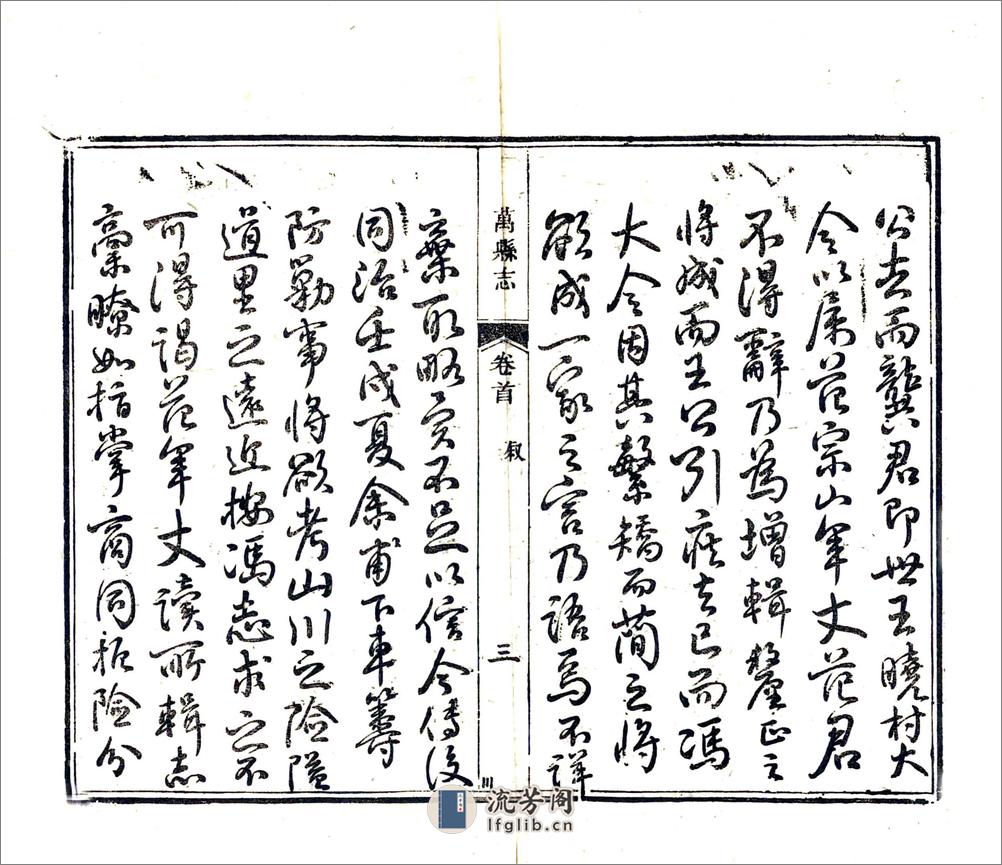 公去而龔君即世王曉村大
令以屬范宗山年丈范君
不得辭乃為增輯釐正之
將成而王公引疾去已而馮
大令因其繁矯而簡之將
欲成一家之言乃語焉不詳
萬縣志
卷首
叙
三
棄取略貿不足以信今傳後
同治壬戌夏余甫下車籌
防勒事將欲考山川之險隘
道里之遠近按馮志求之不
可得謁范年丈讀所輯志
稾瞭如指掌商同扼險分
流芳阁
lfglib.cn